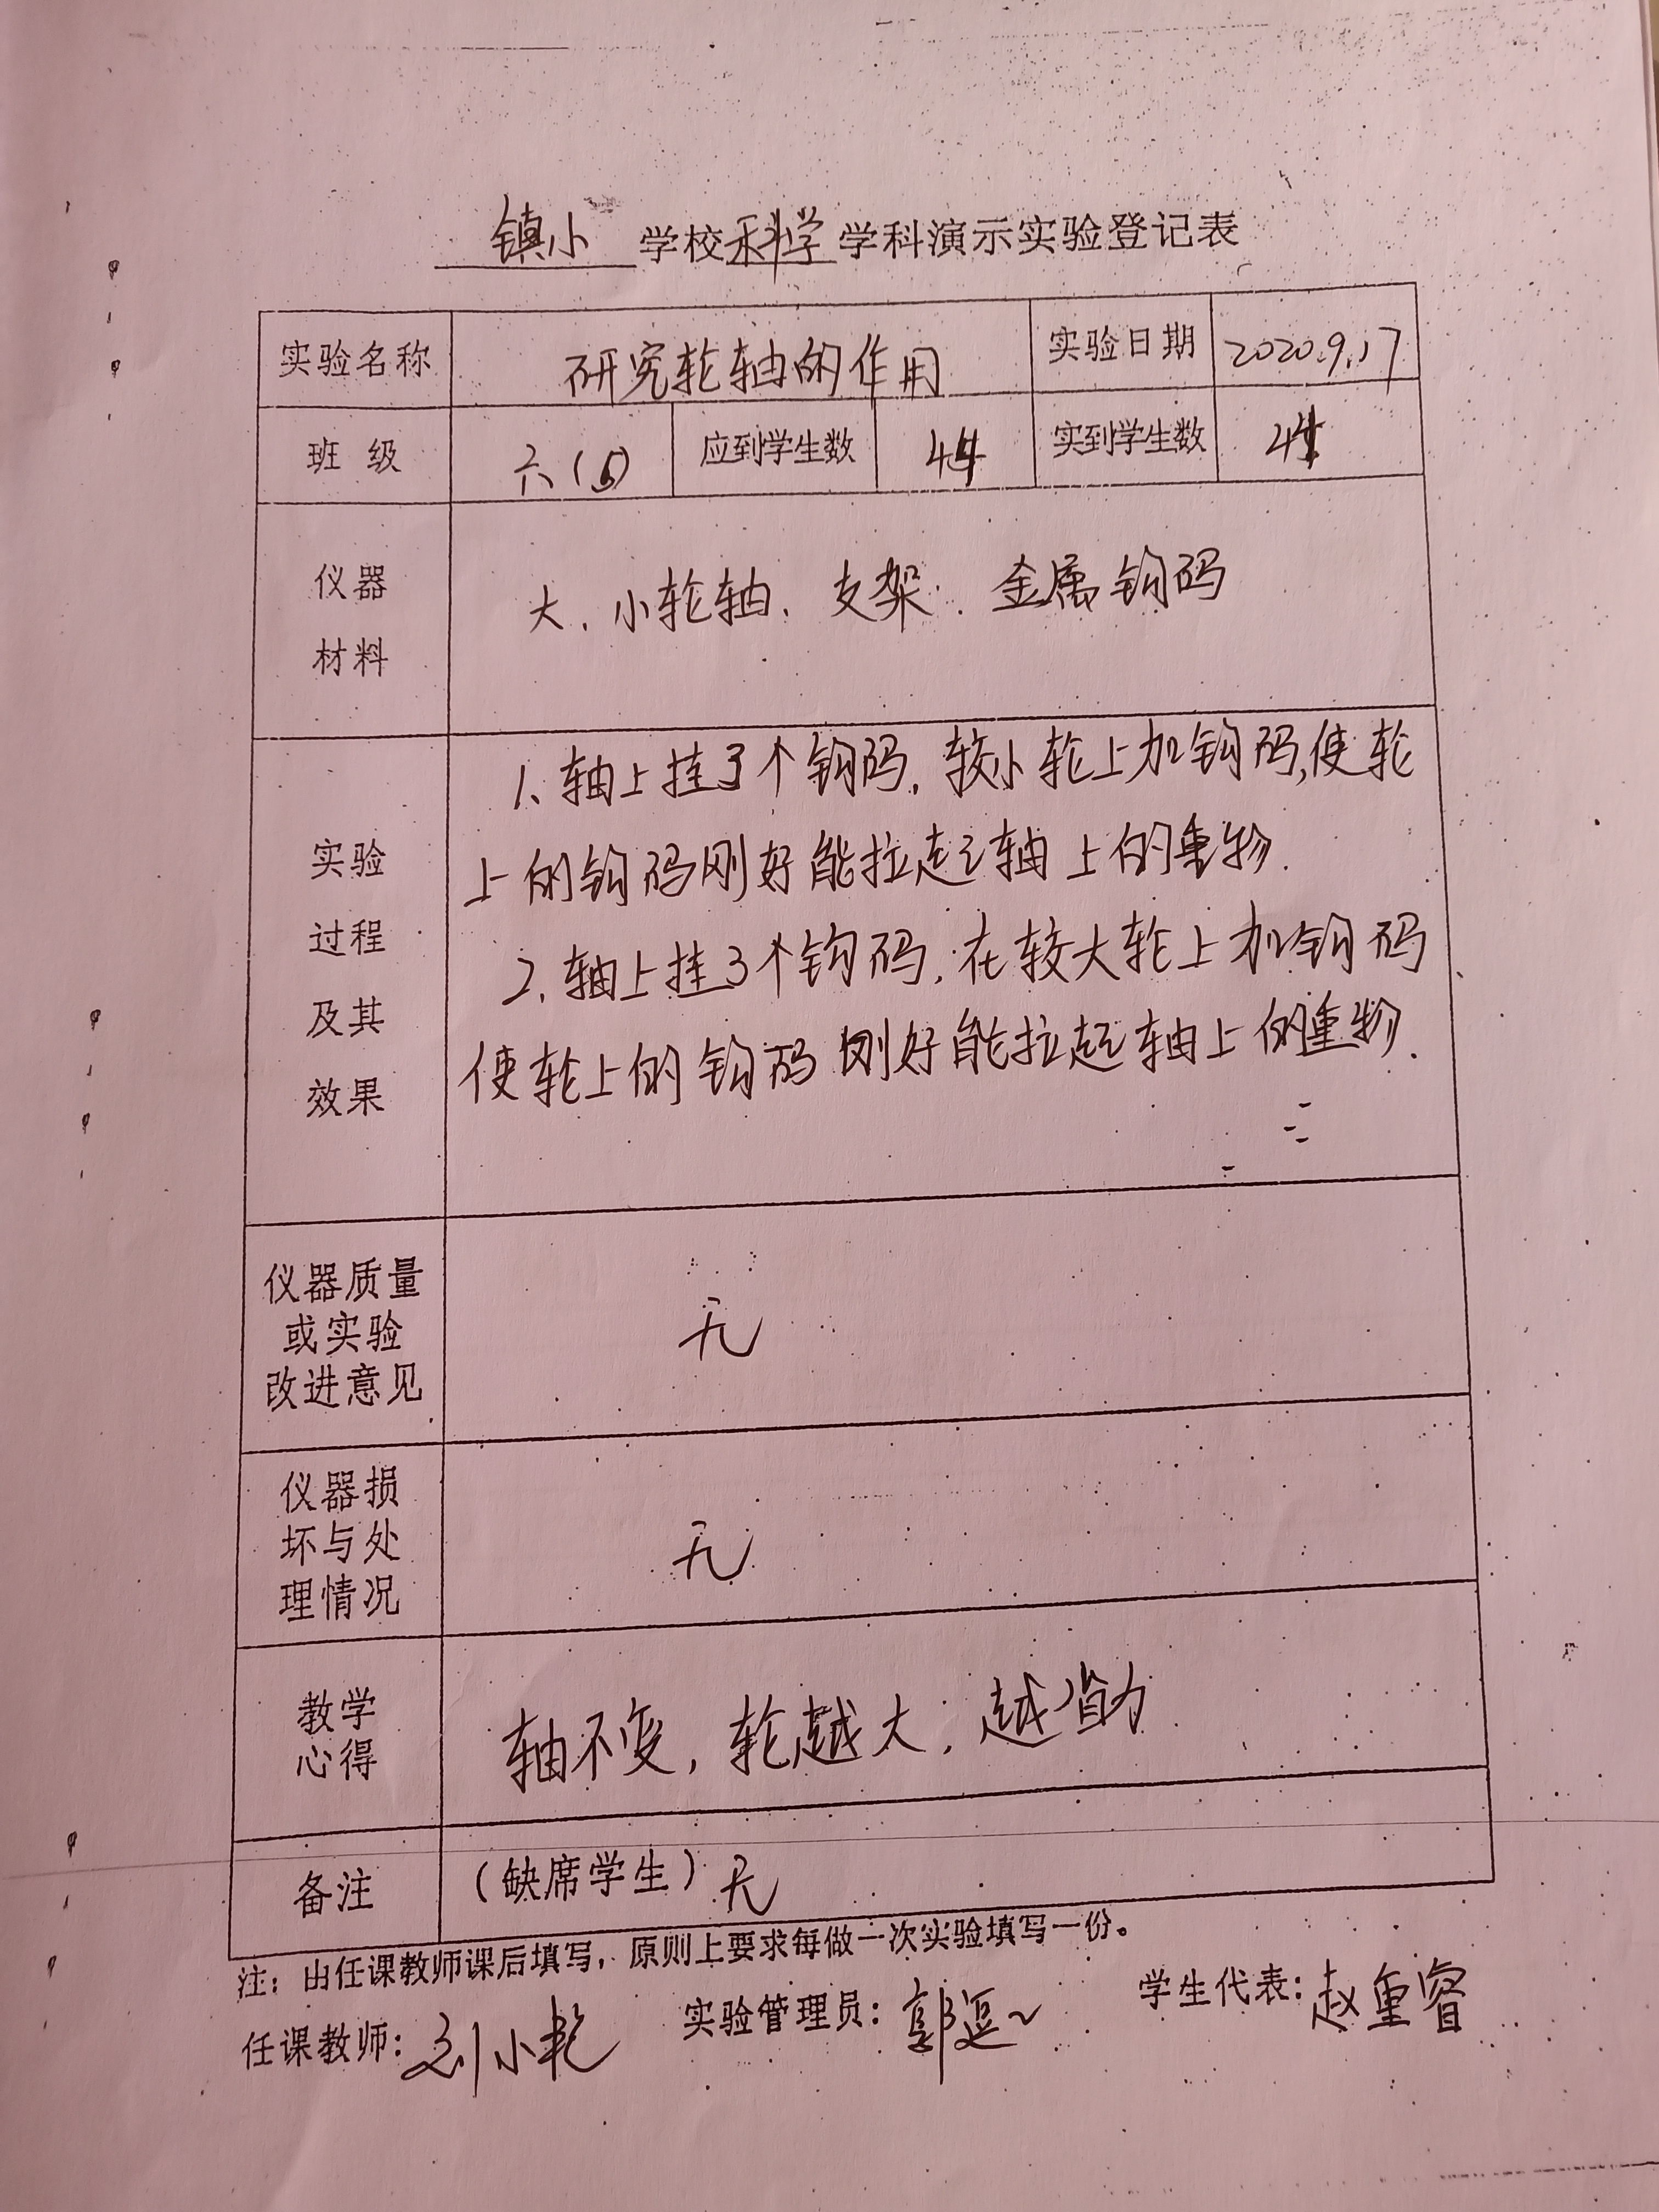 镇小 学校 科学 学科演示实验登记表
实验名称 研究轮轴的作用 实验日期 2020.9.17
班 级 六(5) 应到学生数 44 实到学生数 44
仪器
材料
大、小轮轴、支架、金属钩码
实验
过程
及其
效果
1、轴上挂3个钩码,较小轮上加钩码,使轮
上的钩码刚好能拉起轴上的重物.
2、轴上挂3个钩码,在较大轮上加钩码
使轮上的钩码刚好能拉起轴上的重物.
仪器质量
或实验
改进意见
无
仪器损
坏与处
理情况
无
教学
心得
轴不变,轮越大,越省力
备注 (缺席学生) 无
注:由任课教师课后填写,原则上要求每做一次实验填写一份。
任课教师: 刘小 实验管理员: 郭 学生代表: 赵重睿